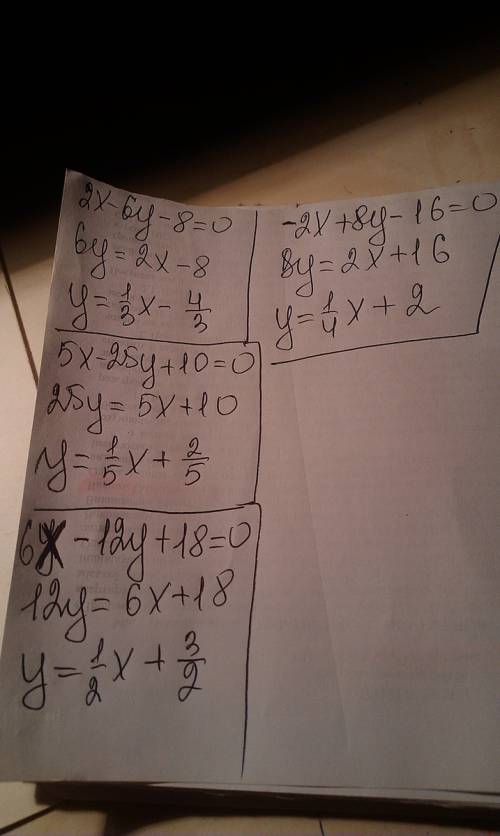 2x-6y-8=0
6y=2x-8
y=\frac{1}{3}x-\frac{4}{3}
5x-25y+10=0
25y=5x+10
y=\frac{1}{5}x+\frac{2}{5}
6x-12y+18=0
12y=6x+18
y=\frac{1}{2}x+\frac{3}{2}
-2x+8y-16=0
8y=2x+16
y=\frac{1}{4}x+2